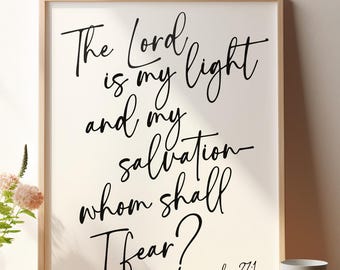 The Lord
is my light
and my
salvation
whom shall
I fear?
27:1